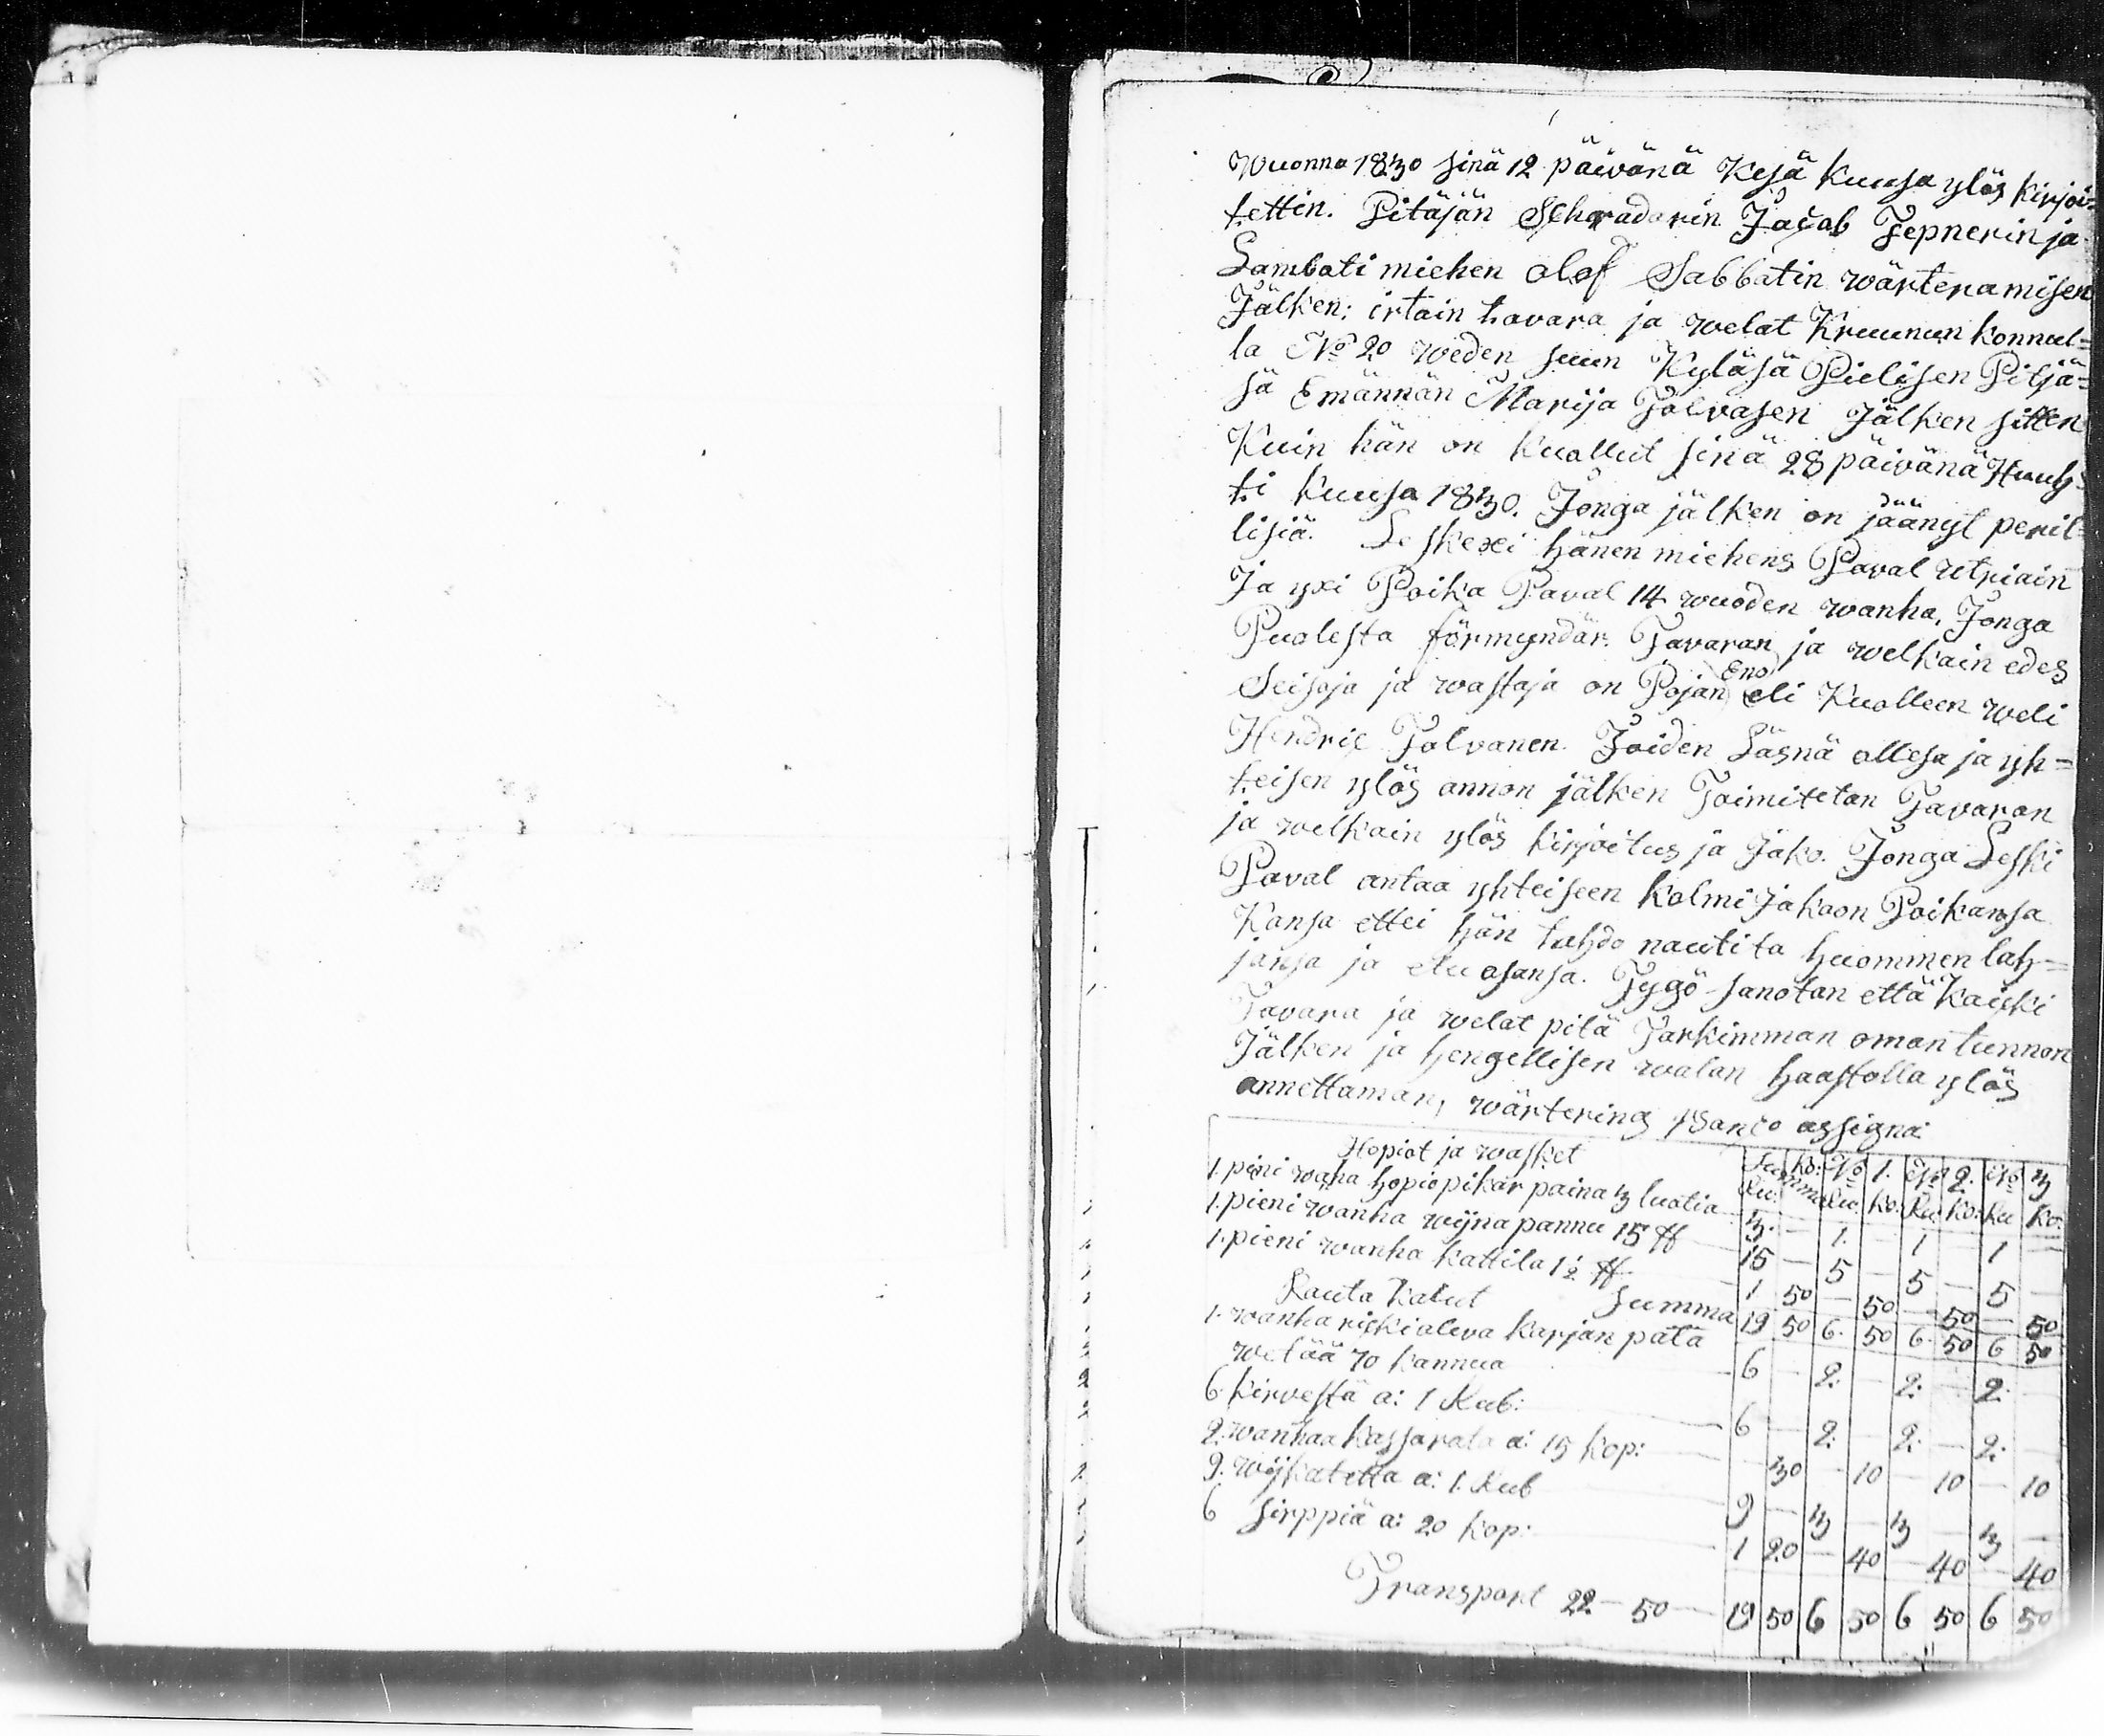 Wuonna 1830 sinä 12 päivänä Kesä Kuusa ylös kirjoi=
tettin. Pitäjän Schradarin Jacob Tepnerin ja
Lambati miehen olof Sabbatin wärteramisen
Jälken: irtain tavara ja welat Kruunun konnul=
la No 20 weden suun Kyläsä Pielisen Pitjä=
sä Emännän Marija Tolvasen Jälken sitten
Kuin hän on kuollut sinä 28 päivänä Huuh=
ti kuusa 1830. Jonga jälken on jäänyt peril=
lisiä. Leskexi hänen miehens Paval
Ja yxi Poika Paval 14 wuoden wanha, Jonga
Puolesta förmyndär. Tavaran ja welkain edes
Seisoja ja wastaja on Pojan Eno eli Kuolleen weli
Hendric Tolvanen. Joiden Läsnä ollesa ja yh=
teisen ylös annon jälken Toimitetan Tavaran
ja welkain ylös kirjoitus ja Jako. Jonga Leski
Paval antaa yhteiseen kolmi Jakoon Poikansa
Kansa ettei hän tahdo nautita huommen lah=
jansa ja etu osansa. Tygö sanotan että Kaicki
Tavara ja welat pitä Tarkimman oman tunnon
Jälken ja hengellisen walan haastolla ylös
annettaman, wärtering Banco assigna:
Hopiat ja wasket Summa No 1. No 2. No 3
Ru: ko: Ru: ko: Ru: ko: Ru ko:
1. pieni waha hopiopikar paina 3 luotia 3. — 1. — 1 — 1 —
1. pieni wanha wijna pannu 15 ℔ 15 — 5 — 5 — 5 —
1. pieni wanha kattila 1½ ℔ 1 50 — 50 — 50 — 50
Summa 19 50 6. 50 6. 50 6 50
Rauta Kalut
1. wanha ricki oleva karjan pata
wetää 10 kannua 6 — 2. — 2. — 2. —
6. kirvestä a: 1 Rub: 6 — 2. — 2. — 2. —
2. wanhaa kassarata a: 15 kop: — 30 — 10 — 10 — 10
9. wijkatetta a: 1. Rub 9 — 3 — 3 — 3 —
6 sirppiä a: 20 kop: 1 20 — 40 — 40 — 40
Transport 22 — 50 — 19 50 6 50 6 50 6 50